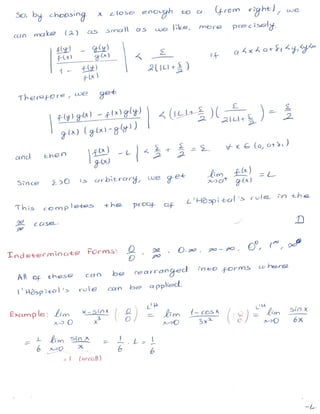 So, by choosing x close enough to a (from right), we
can make (2) as small as we like, more precisely,
| (f(y)/f(x) − g(y)/g(x)) / (1 − f(y)/f(x)) | < ε / 2(|L|+ε/2) if a<x<a+δ₁<y,
Therefore, we get
| (f(y)g(x) − f(x)g(y)) / (g(x)(g(x)−g(y))) | < (|L|+ε/2)(ε / 2(|L|+ε/2)) = ε/2
and then | f(x)/g(x) − L | < ε/2 + ε/2 = ε ∀ x ∈ (a, a+δ₁)
Since ε>0 is arbitrary, we get lim x→a⁺ f(x)/g(x) = L
This completes the proof of L'Hôspital's rule in the
∞/∞ case.
Indeterminate Forms: 0/0, ∞/∞, 0.∞, ∞−∞, 0⁰, 1^∞, ∞⁰
All of these can be rearranged into forms where
l'Hôspital's rule can be applied.
Example: lim x→0 (x−sinx)/x³ (0/0) L'H = lim x→0 (1−cosx)/3x² (:0/0) L'H = lim x→0 sinx/6x
= 1/6 lim x→0 sinx/x = 1/6 . 1 = 1/6
=1